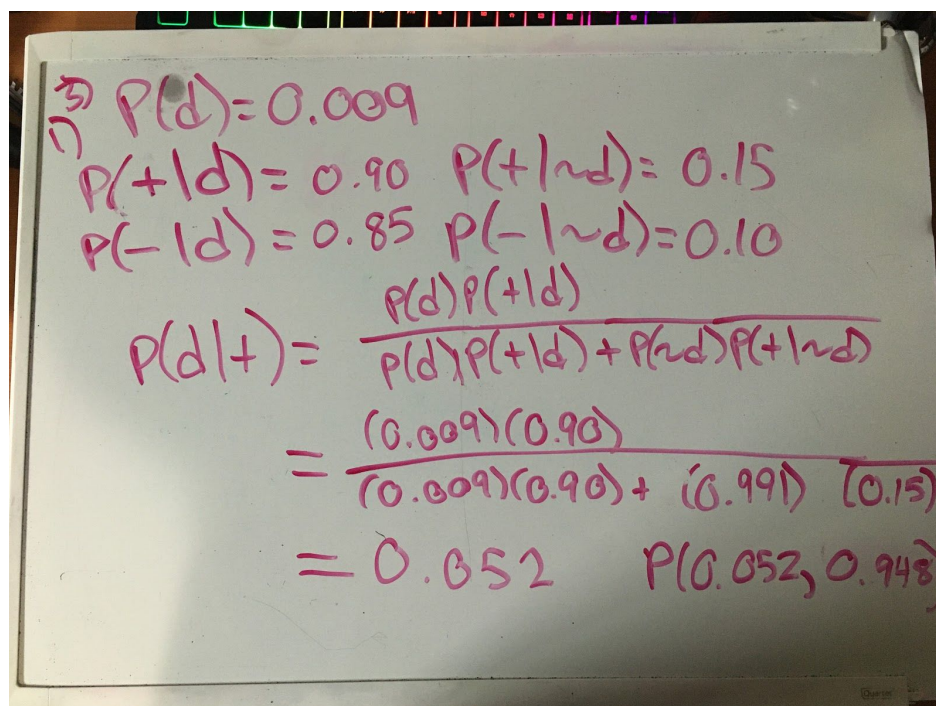 5)
1)
P(d)=0.009
P(+|d)= 0.90 P(+|~d)= 0.15
P(-|d)=0.85 P(-|~d)=0.10
P(d)P(+|d)
P(d|+)=
P(d)P(+|d)+P(~d)P(+|~d)
(0.009)(0.90)
=
(0.009)(0.90)+ (0.991) (0.15)
=0.052 P(0.052, 0.948)
Quartet